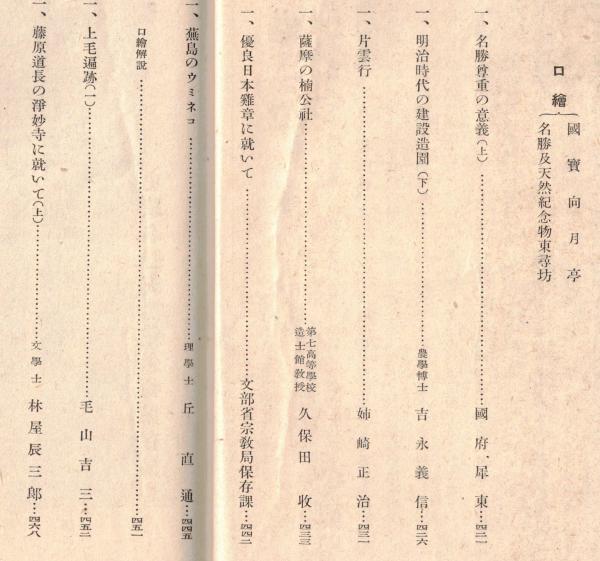 口繪{國寶向月亭
名勝及天然紀念物東尋坊
一、名勝尊重の意義(上)…國府犀東…四二一
一、明治時代の建設造園(下)…農學博士 吉永義信…四二六
一、片雲行…姉崎正治…四三一
一、薩摩の楠公社…第七高等學校造士館敎授 久保田收…四三三
一、優良日本雞章に就いて…文部省宗敎局保存課…四四二
一、蕪島のウミネコ…理學士 丘直通…四四五
口繪解說…四五一
一、上毛遍跡(一)…毛山吉三…四五二
一、藤原道長の淨妙寺に就いて(上)…文學士 林屋辰三郎…四六八